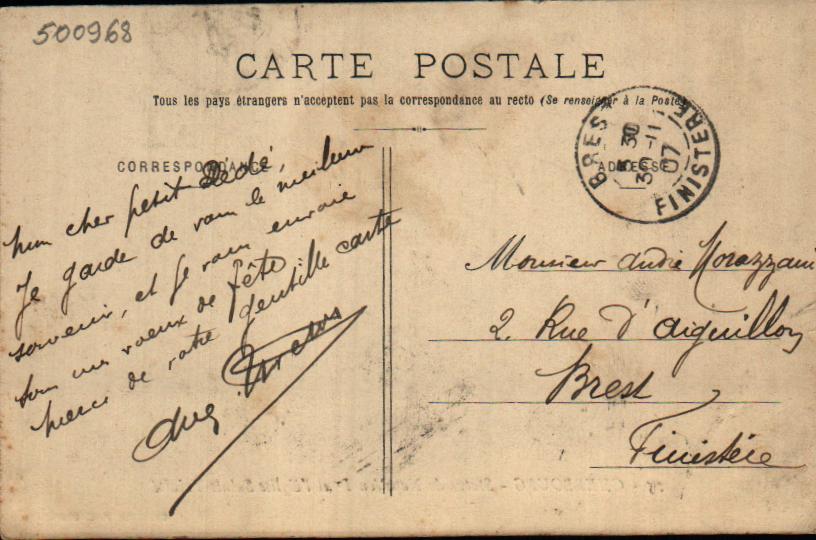 500968
CARTE POSTALE
Tous les pays étrangers n'acceptent pas la correspondance au recto (Se renseigner à la Poste)
CORRESPONDANCE
ADRESSE
BREST
30
30 -11
07
FINISTERE
Mon cher petit Dédé,
Je garde de vous le meilleur
souvenir, et je vous envoie
tous mes voeux de fête
merci de votre gentille carte
Aug.
Monsieur André Morazzani
2. Rue d'Aiguillon
Brest
Finistère